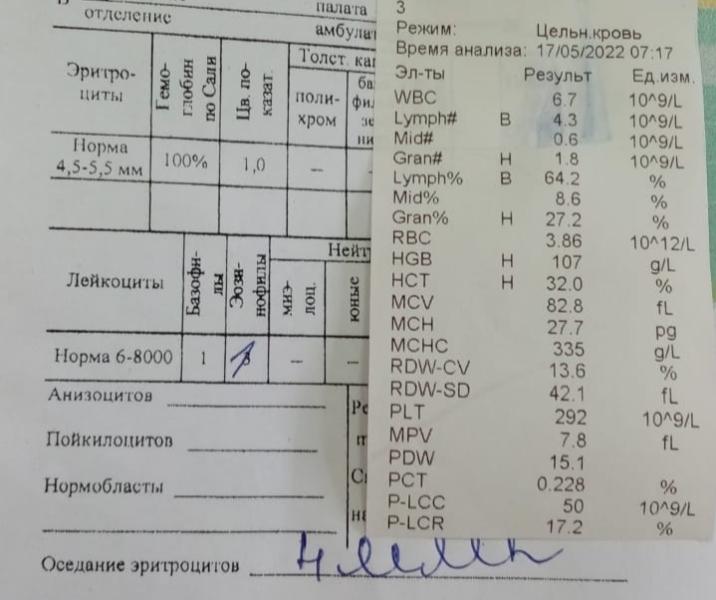 отделение
палата
амбула
Эритро-
циты
Гемо-
глобин
по Сали
Цв. по-
казат.
Толст. ка
поли-
хром
ба
фил
зе
ни
Норма
4,5-5,5 мм
100%
1,0
–
–
Лейкоциты
Базофи-
лы
Эози-
нофилы
Нейт
миэ-
лоц.
юные
Норма 6-8000
1
–
–
Анизоцитов
Пойкилоцитов
Нормобласты
Ре
п
С
на
Оседание эритроцитов
3
Режим: Цельн.кровь
Время анализа: 17/05/2022 07:17
Эл-ты Результ Ед.изм.
WBC 6.7 10^9/L
Lymph# В 4.3 10^9/L
Mid# 0.6 10^9/L
Gran# Н 1.8 10^9/L
Lymph% В 64.2 %
Mid% 8.6 %
Gran% Н 27.2 %
RBC 3.86 10^12/L
HGB Н 107 g/L
HCT Н 32.0 %
MCV 82.8 fL
MCH 27.7 pg
MCHC 335 g/L
RDW-CV 13.6 %
RDW-SD 42.1 fL
PLT 292 10^9/L
MPV 7.8 fL
PDW 15.1
PCT 0.228 %
P-LCC 50 10^9/L
P-LCR 17.2 %